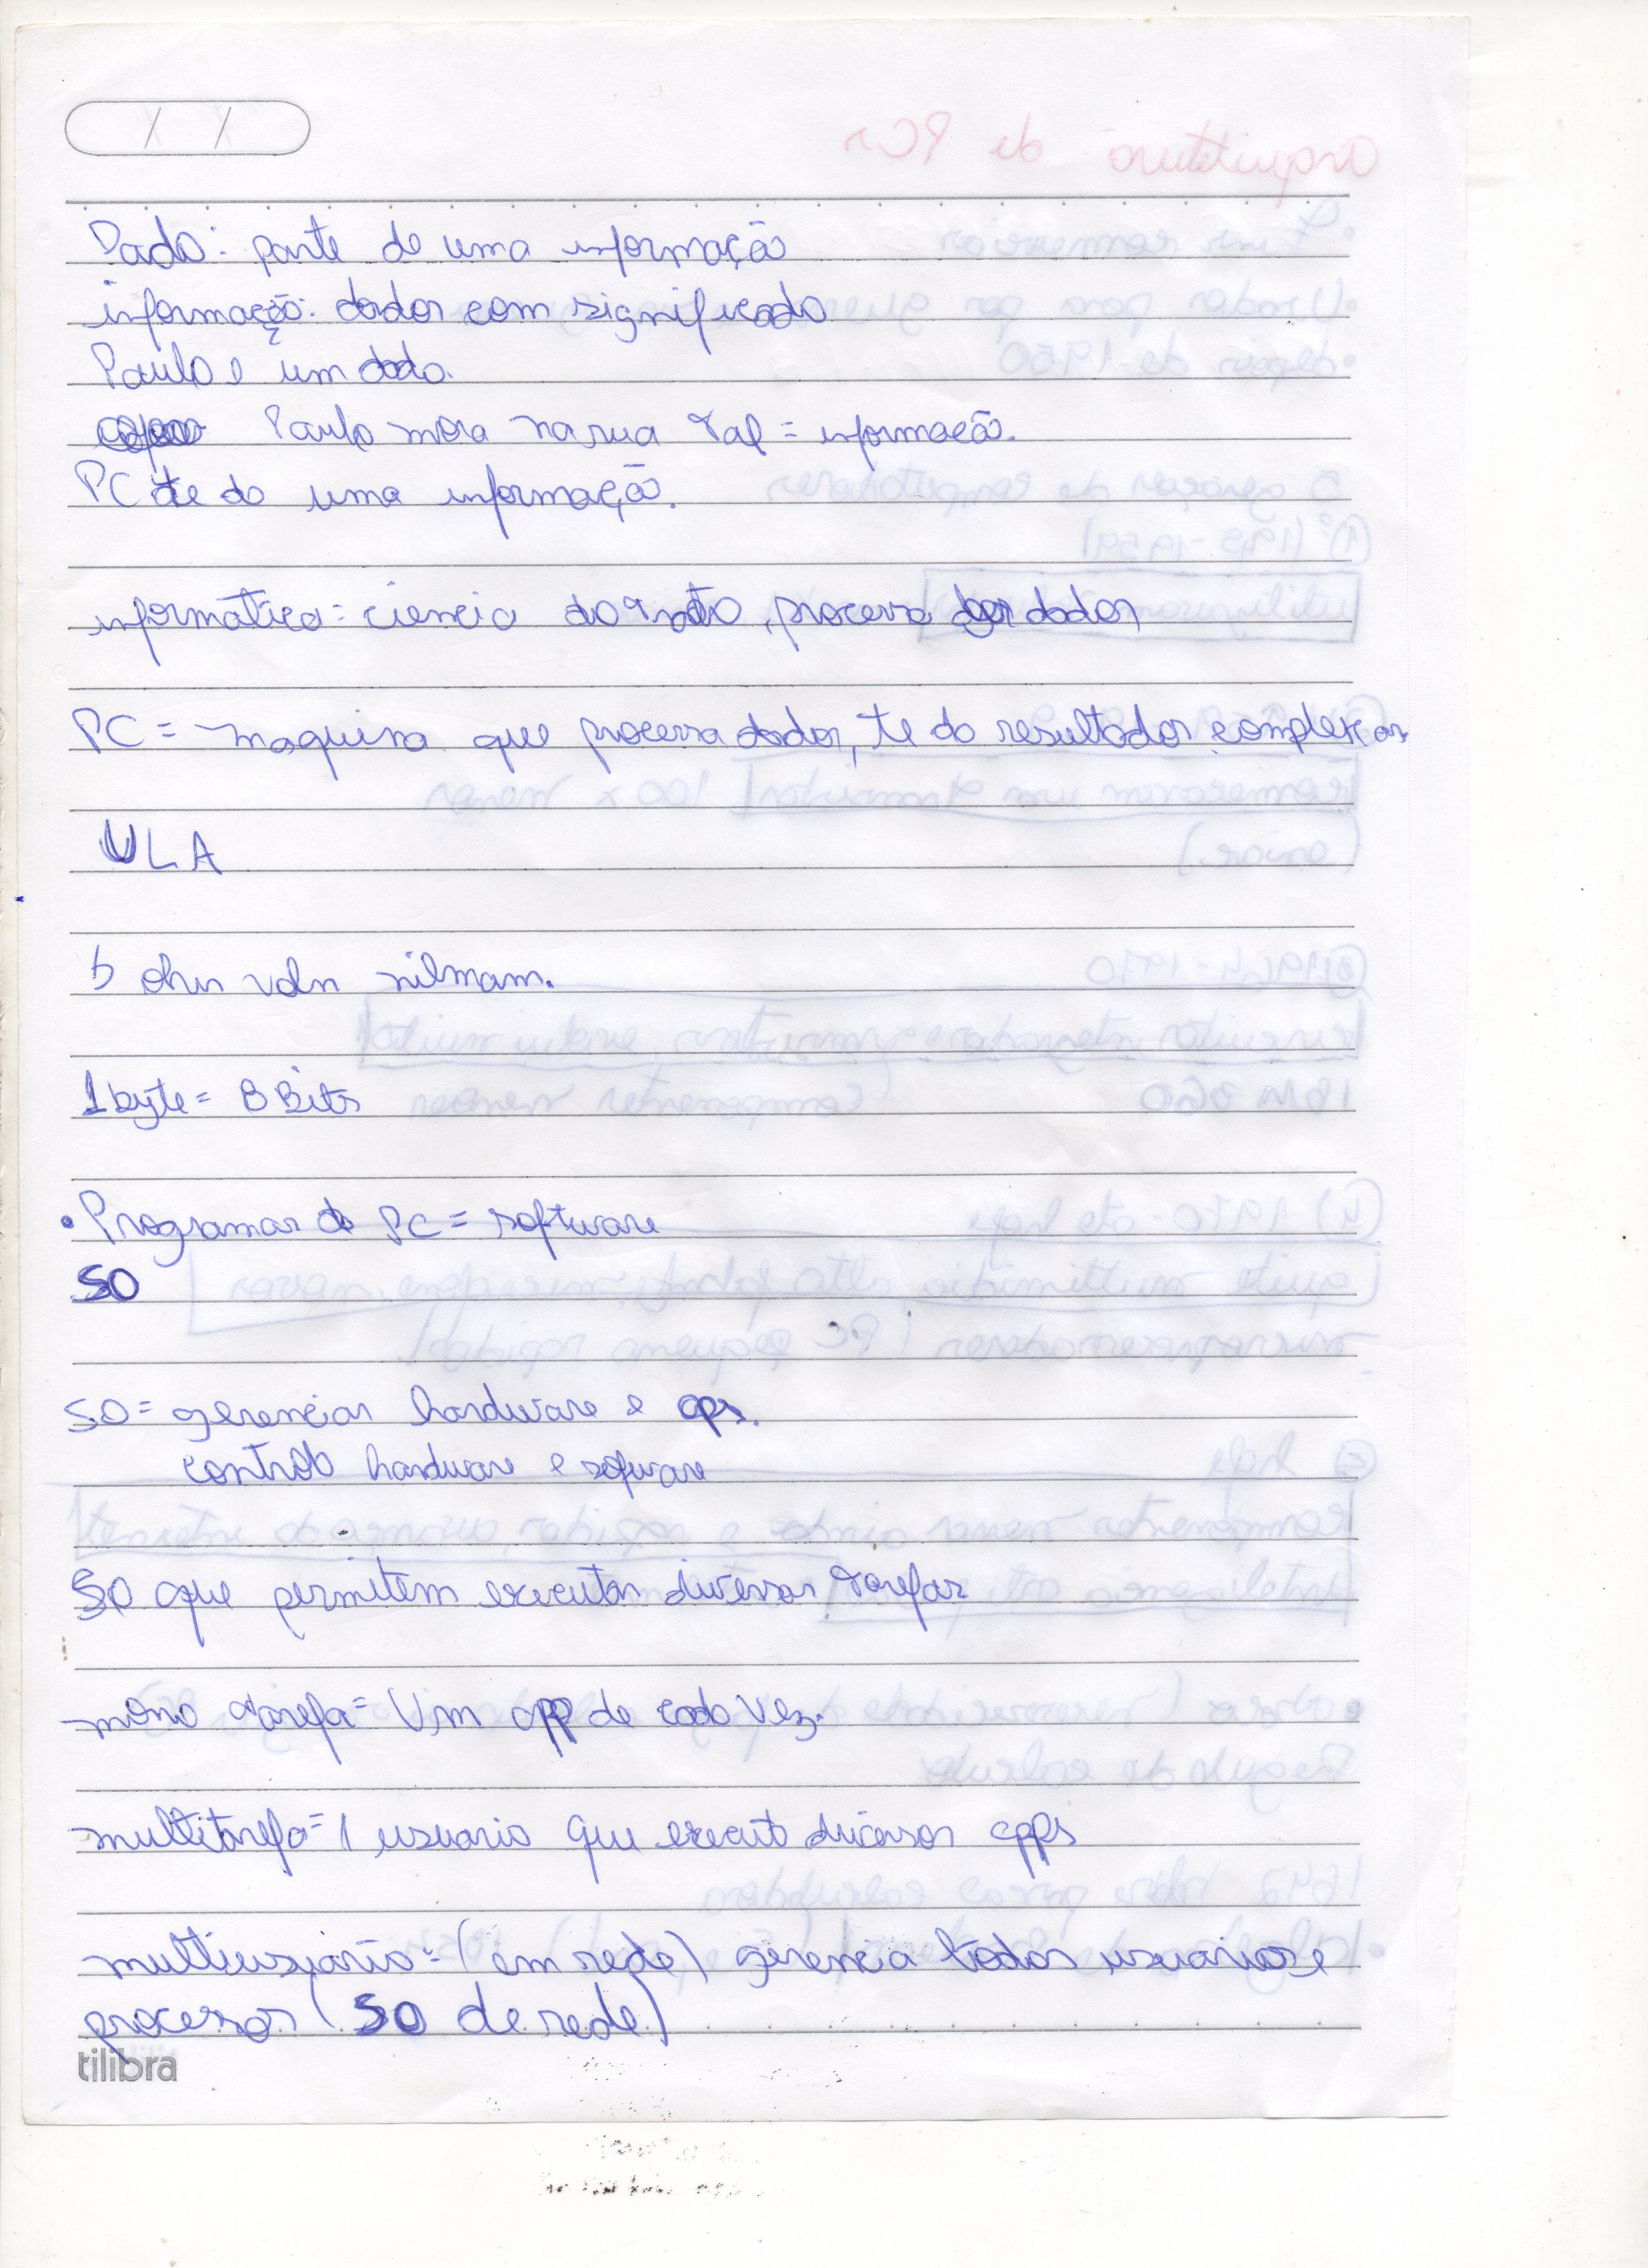 Dado: parte de uma informação
informação: dados com significado
Paulo e um dado.
Paulo mora na rua tal = informação.
PC te da uma informação.
informática = ciencia do, processa dados
PC = maquina que processa dados, te da resultados complexos
ULA
John von nilmam.
1 byte = 8 Bits
• Programas do PC = software
SO
SO = gerenciar hardware e aps.
controla hardware e sofware
SO que permitem executar diversas tarefas
mono tarefa = Um app de cada vez.
multitarefa = 1 usuario que executa diversos apps
multiusuário = (em rede) gerencia todos usuarios e
processos (SO de rede)
tilibra